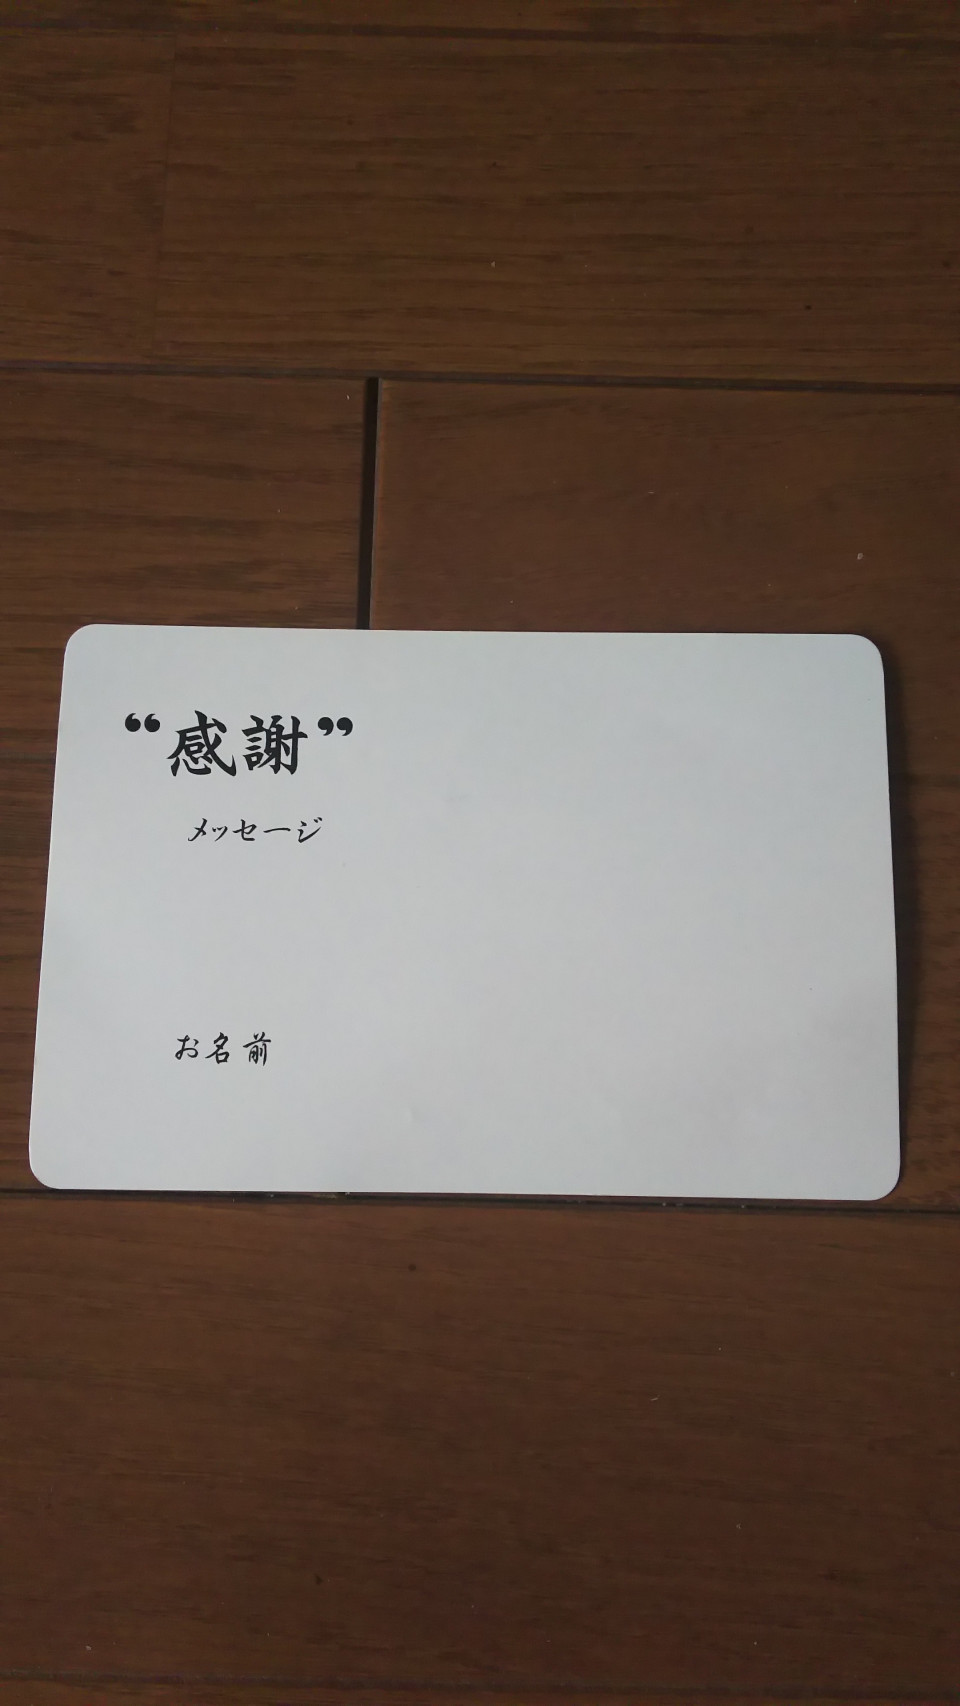 “感謝”
メッセージ
お名前